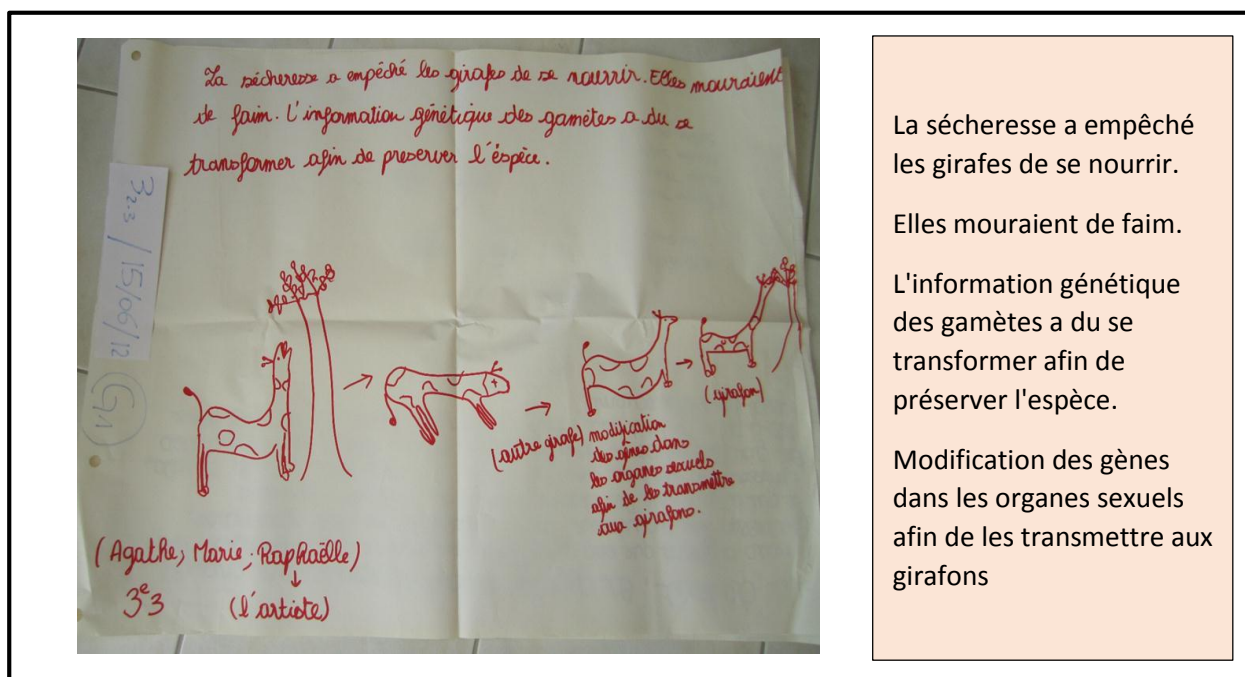 La sécheresse a empéché les girafes de se nourrir. Elles mouraient
de faim. L'information génétique des gamètes a du se
transformer afin de preserver l'éspèce.
3 2-3 / 15/06/12
G1
(autre girafe) modification
des gènes dans
les organes sexuels
afin de les transmettre
aux girafons.
(girafon)
(Agathe, Marie, Raphaëlle)
3e3
(l'artiste)
La sécheresse a empêché
les girafes de se nourrir.
Elles mouraient de faim.
L'information génétique
des gamètes a du se
transformer afin de
préserver l'espèce.
Modification des gènes
dans les organes sexuels
afin de les transmettre aux
girafons